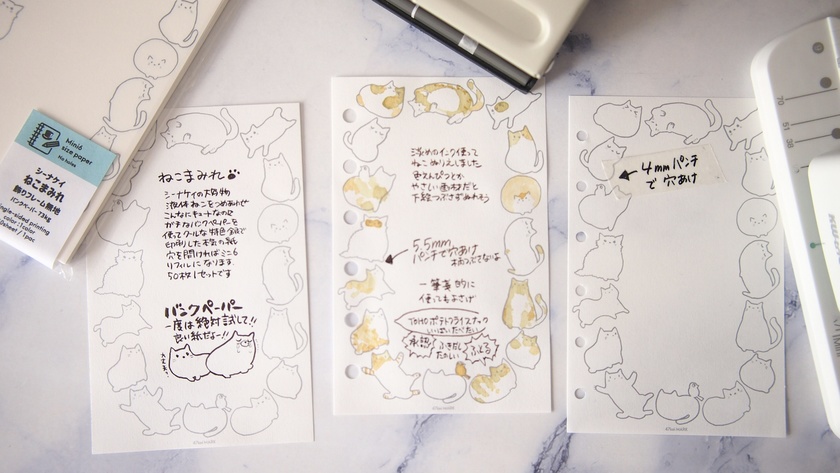 Mini6
size paper
No holes
シーナケイ
ねこまみれ
飾りフレーム無地
バンクペーパー73kg
single-sided printing
color:1color
ねこまみれ
シーナケイの大好物
こんなにキュートなのに
ガチなバンクペーパーを
使ってクールな特色銀で
印刷した本気の紙
穴を開ければミニ6
リフィルになります
50枚1セットです
バンクペーパー
一度は絶対試して!!
良い紙だなー!!
淡めのインク使って
ねこぬりえしました
色えんぴつとか
やさしい画材だと
下絵つぶさずぬれそう
5.5mm
パンチで穴あけ
一筆箋的に
使ってもよさげ
TOHOポテトフライスナック
いっぱいたべたい
承認
ふきだし
たのしい
ふとる
4mmパンチ
で穴あけ